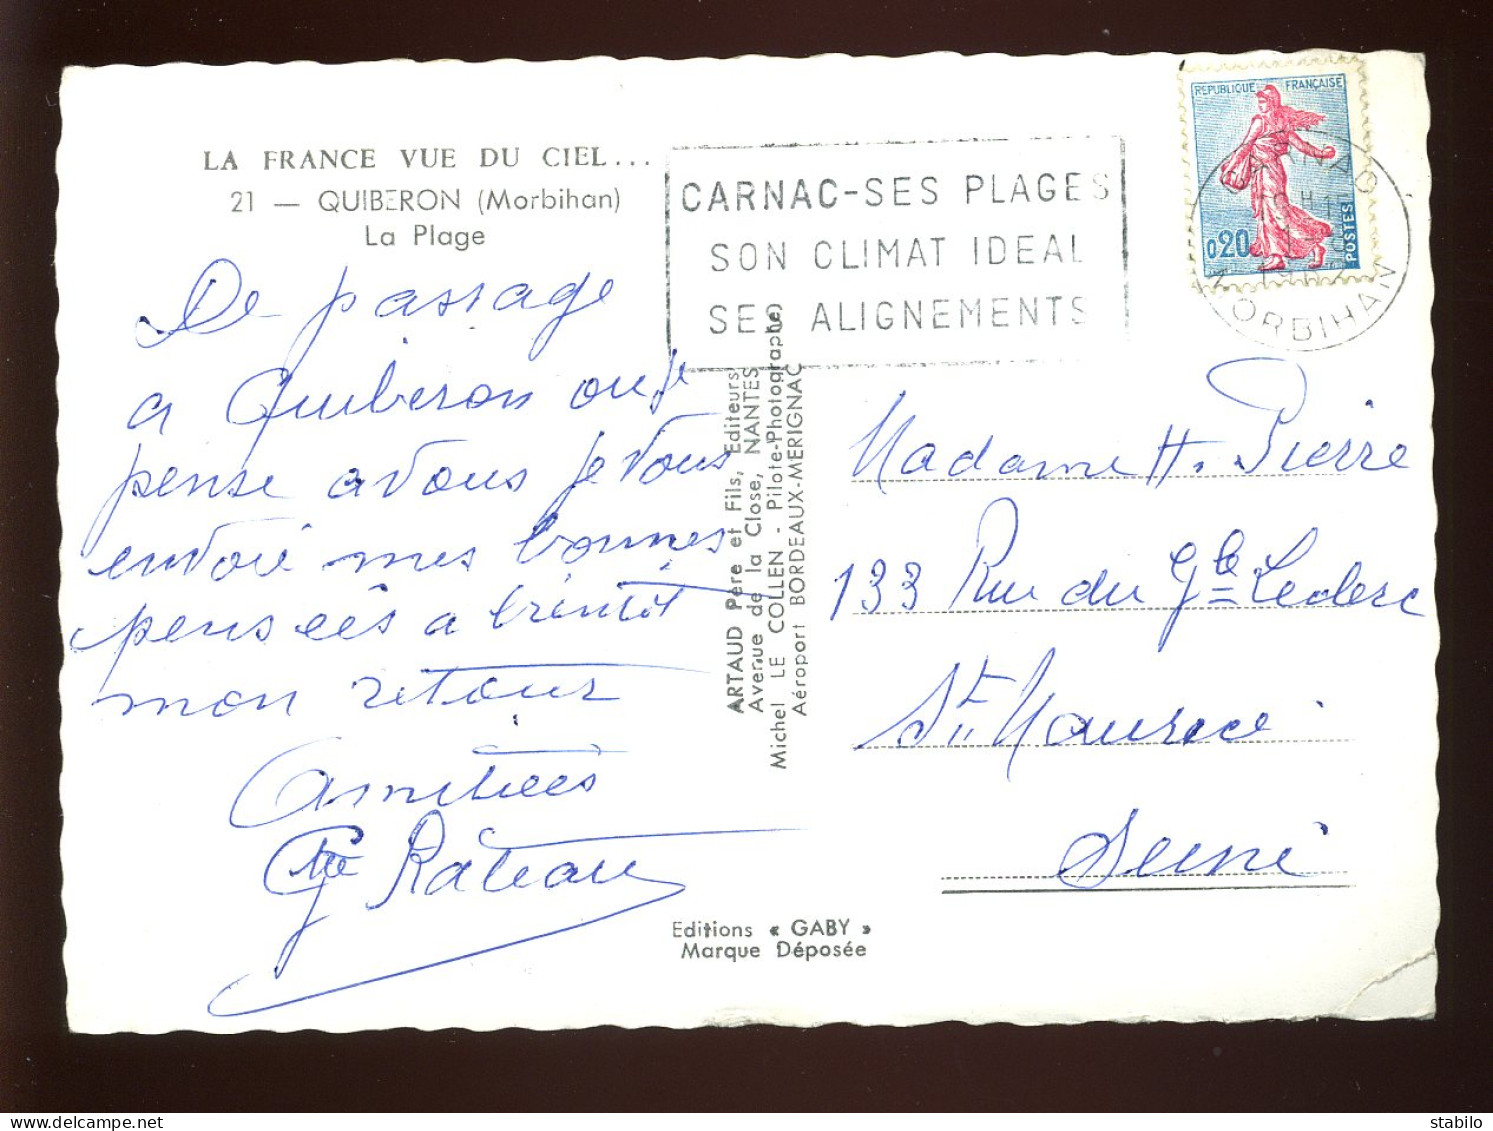 LA FRANCE VUE DU CIEL...
21 — QUIBERON (Morbihan)
La Plage
De passage
a Quiberon ou je
pense a vous je vous
envoie mes bonnes
pensées a bientôt
mon retour
Amitiées
Rateau
CARNAC-SES PLAGES
SON CLIMAT IDEAL
SES ALIGNEMENTS
REPUBLIQUE FRANÇAISE
0,20
POSTES
CARNAC
MORBIHAN
ARTAUD Père et Fils, Editeurs
Avenue de la Close, NANTES
Michel LE COLLEN - Pilote-Photographe)
Aéroport BORDEAUX-MERIGNAC
Madame H. Pierre
133 Rue du Gl Leclerc
St Maurice
Seine
Editions « GABY »
Marque Déposée
stabilo